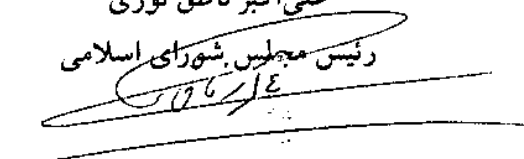 علی اکبر ناطق نوری
رئیس مجلس شورای اسلامی